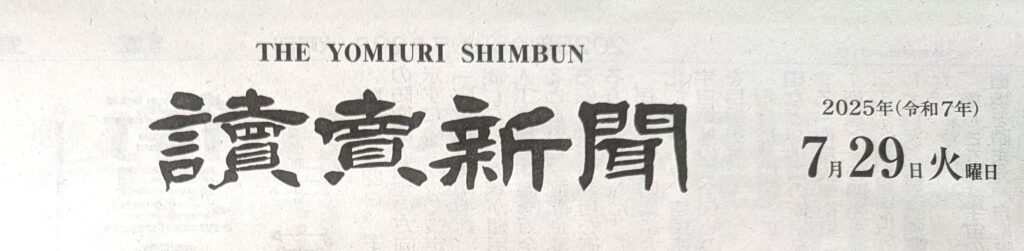 THE YOMIURI SHIMBUN
讀賣新聞
2025年(令和7年)
7月29日火曜日